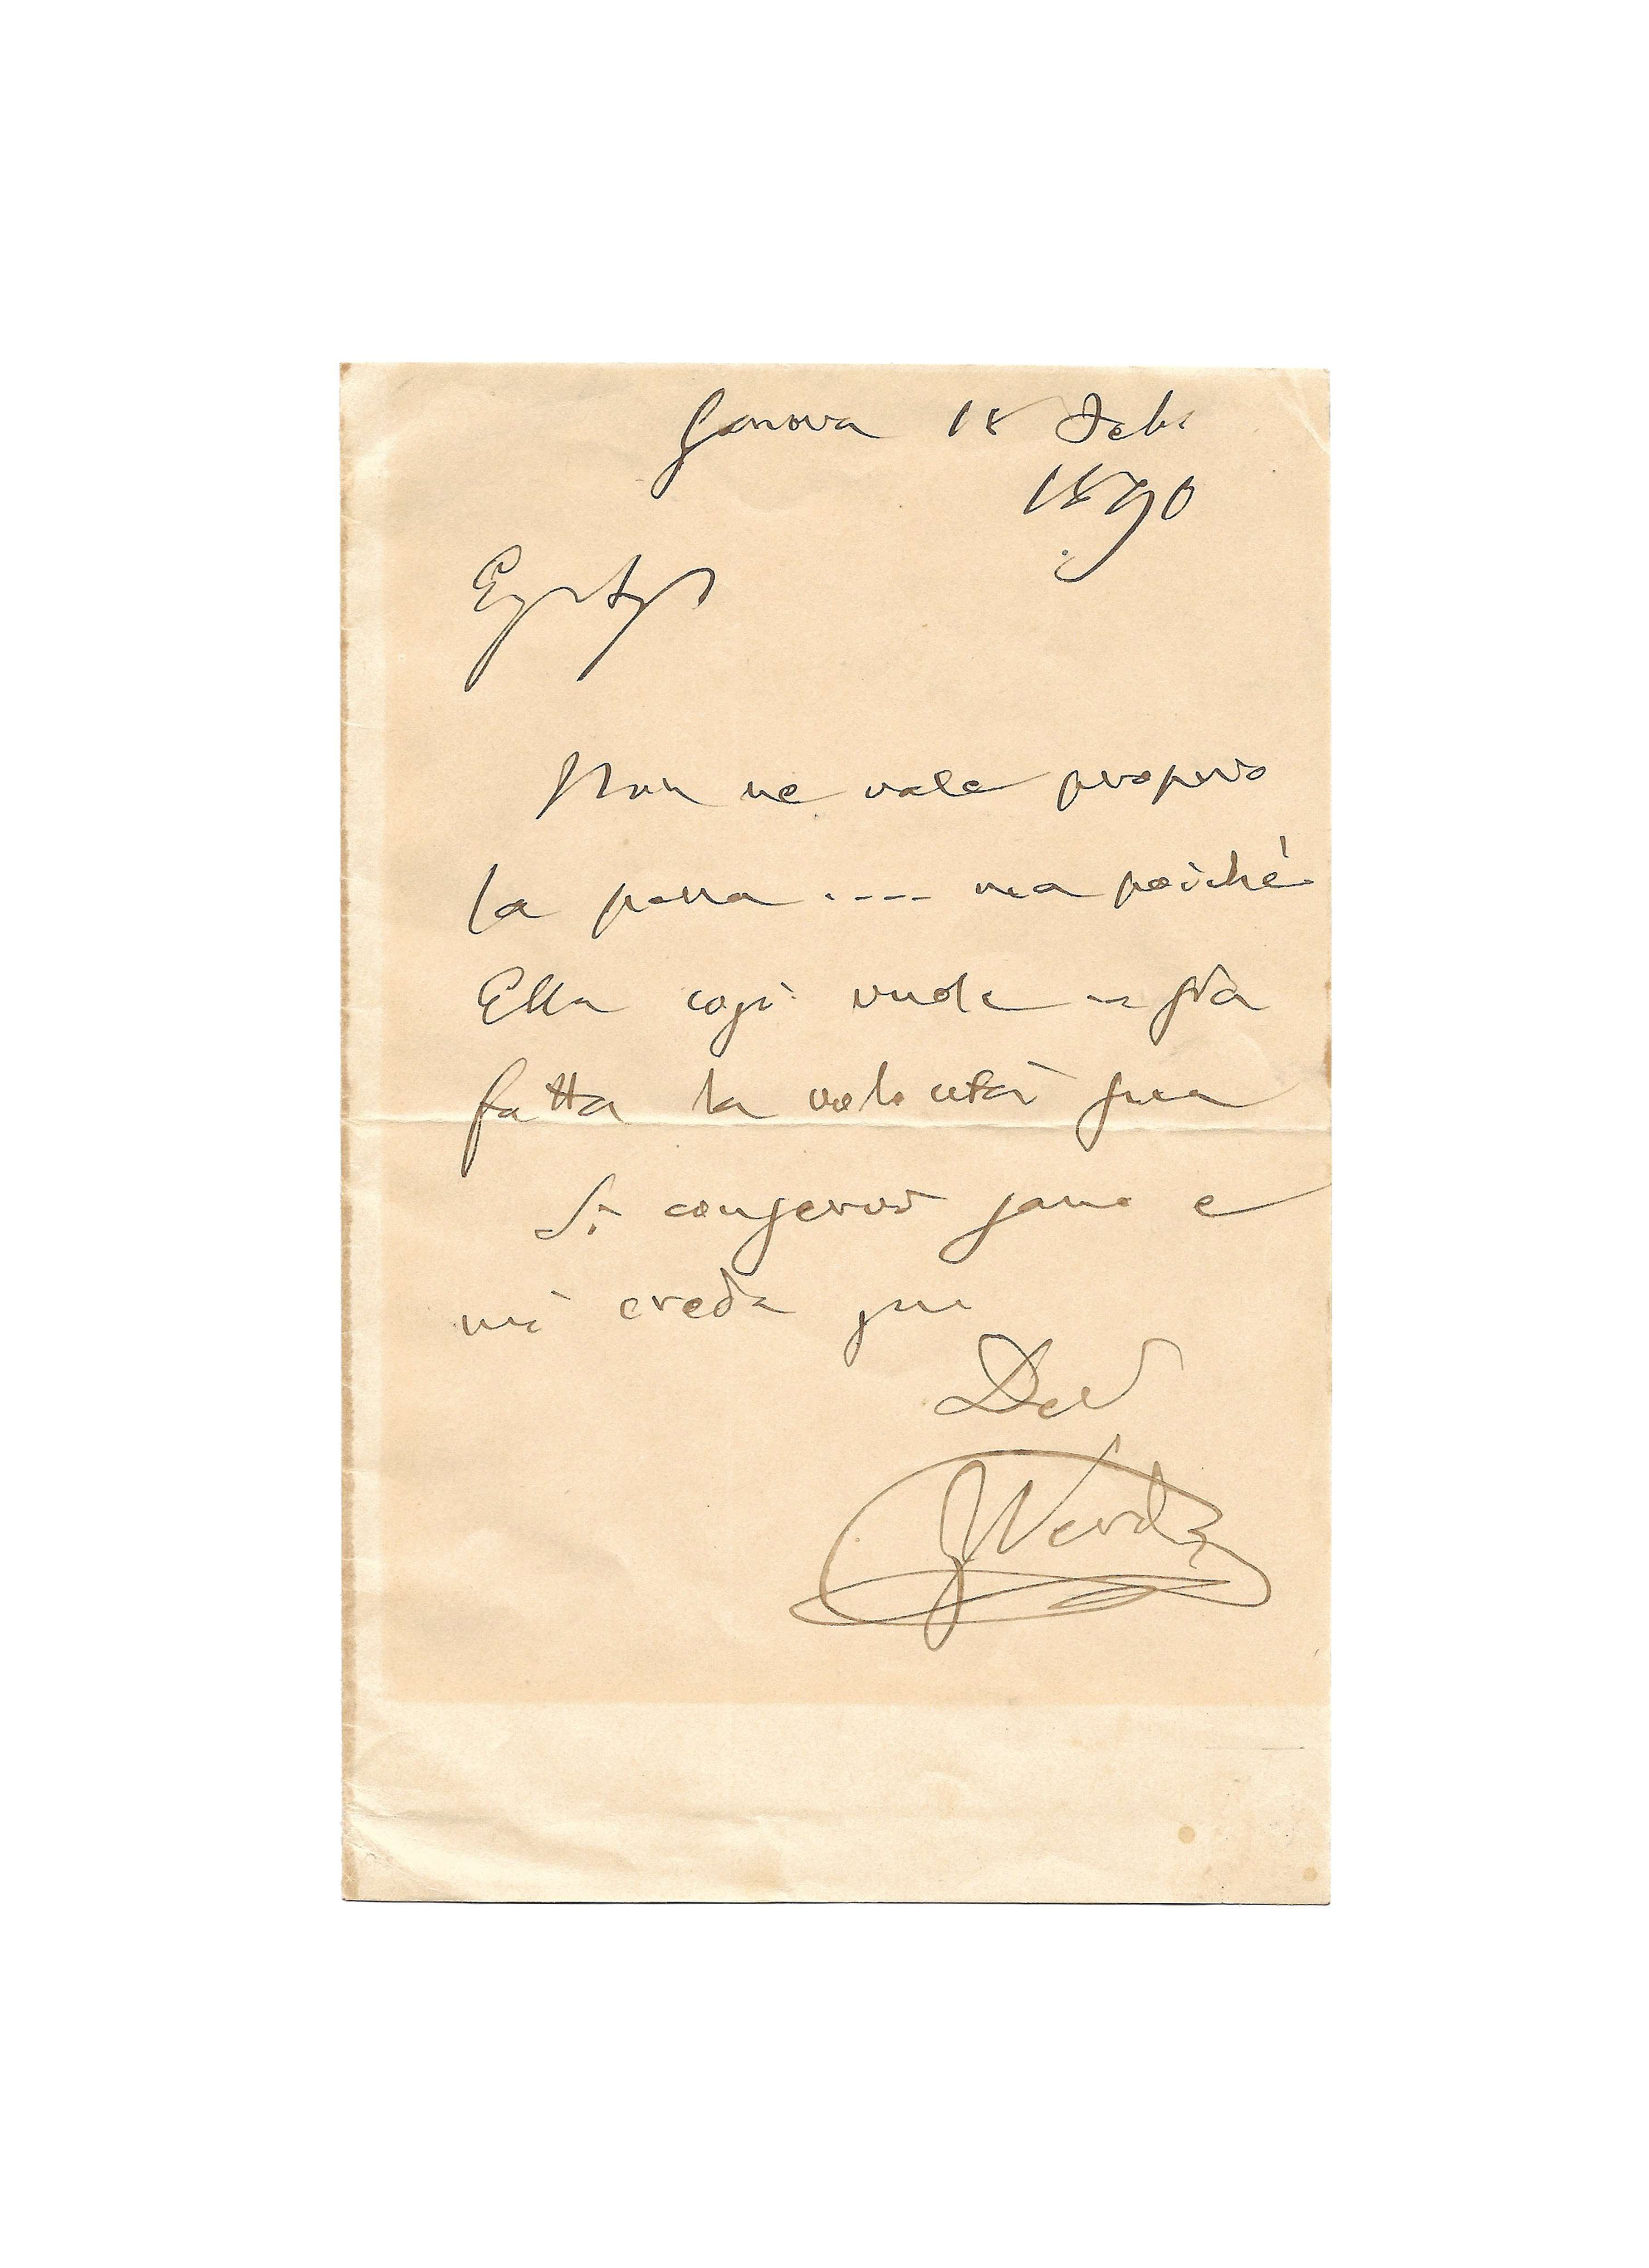 Genova 18 Feb:
1890
Non ne vale proprio
la pena .... ma poichè
Ella così vuole sia
fatta la volontà sua
Si conservi sano e
mi creda suo
Dev
GVerdi